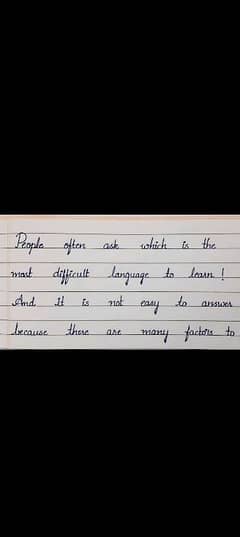 People often ask which is the
most difficult language to learn !
And it is not easy to answer
because there are many factors to